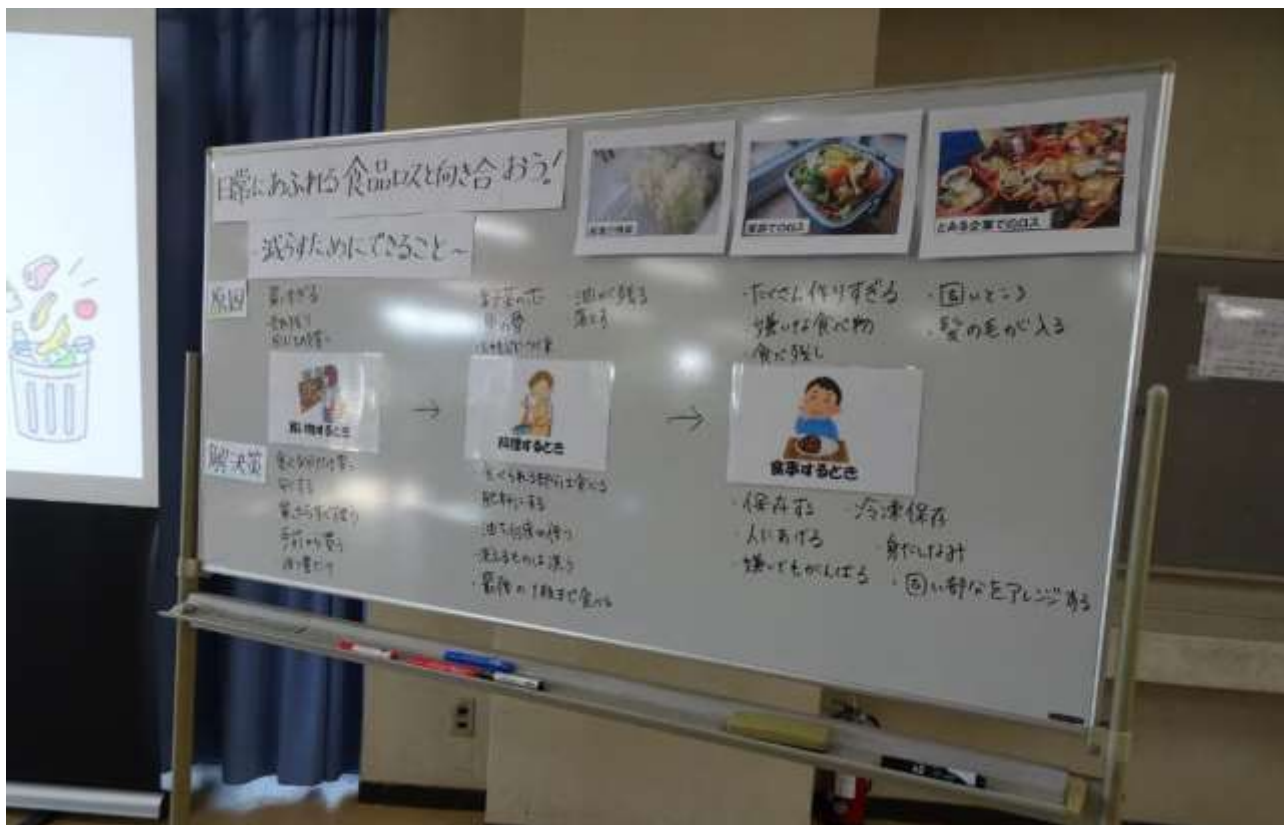 日常にあふれる食品ロスと向き合おう!
減らすためにできること～
家庭でのロス
とある企業でのロス
原因
買いすぎる
油が残る
・たくさん作りすぎる
・嫌いな食べ物
・食べ残し
・固いところ
・髪の毛が入る
買い物するとき
→
料理するとき
→
食事するとき
解決策
食べる分だけ買う
買ったらすぐ使う
手前から買う
・たべられる部分は食べる
肥料にする
・洗えるものは洗う
・最後の1粒まで食べる
・保存する
・人にあげる
・嫌いでもがんばる
・冷凍保存
・身だしなみ
・固い部分をアレンジする